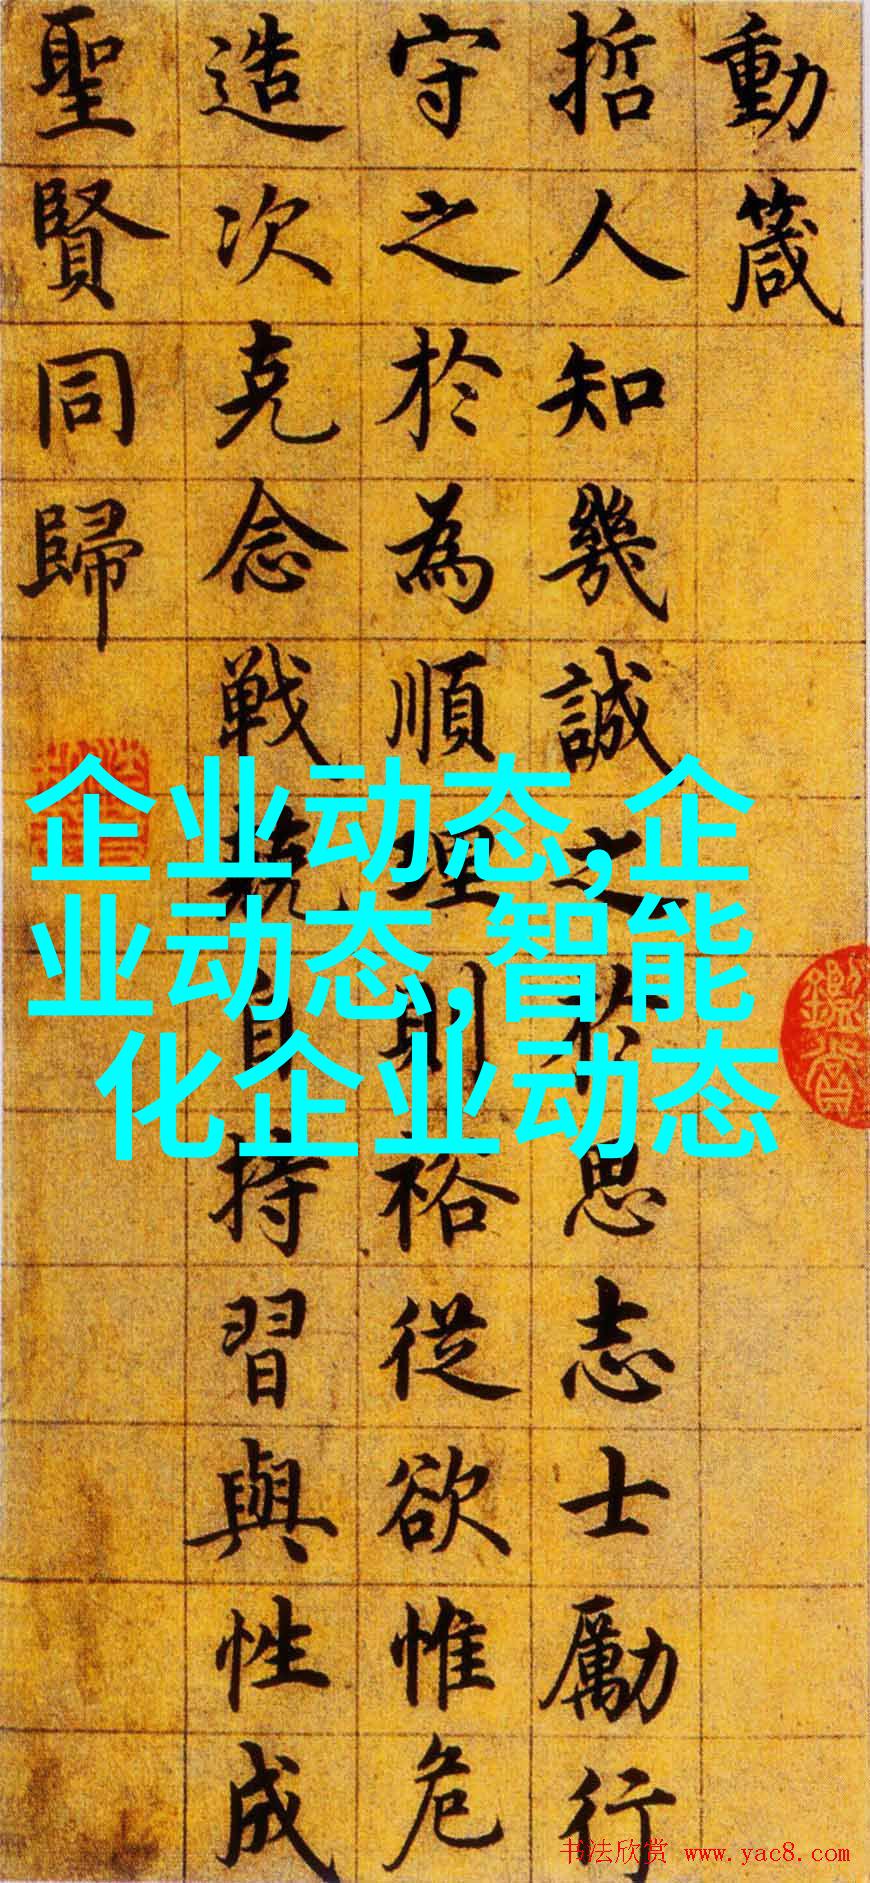 動箴
哲人知幾誠之於思志士勵行
守之於為順理則裕從欲惟危
造次克念戦兢自持習與性成
聖賢同歸
企业动态,企
业动态,智能
化企业动态
书法欣赏 www.yac8.com